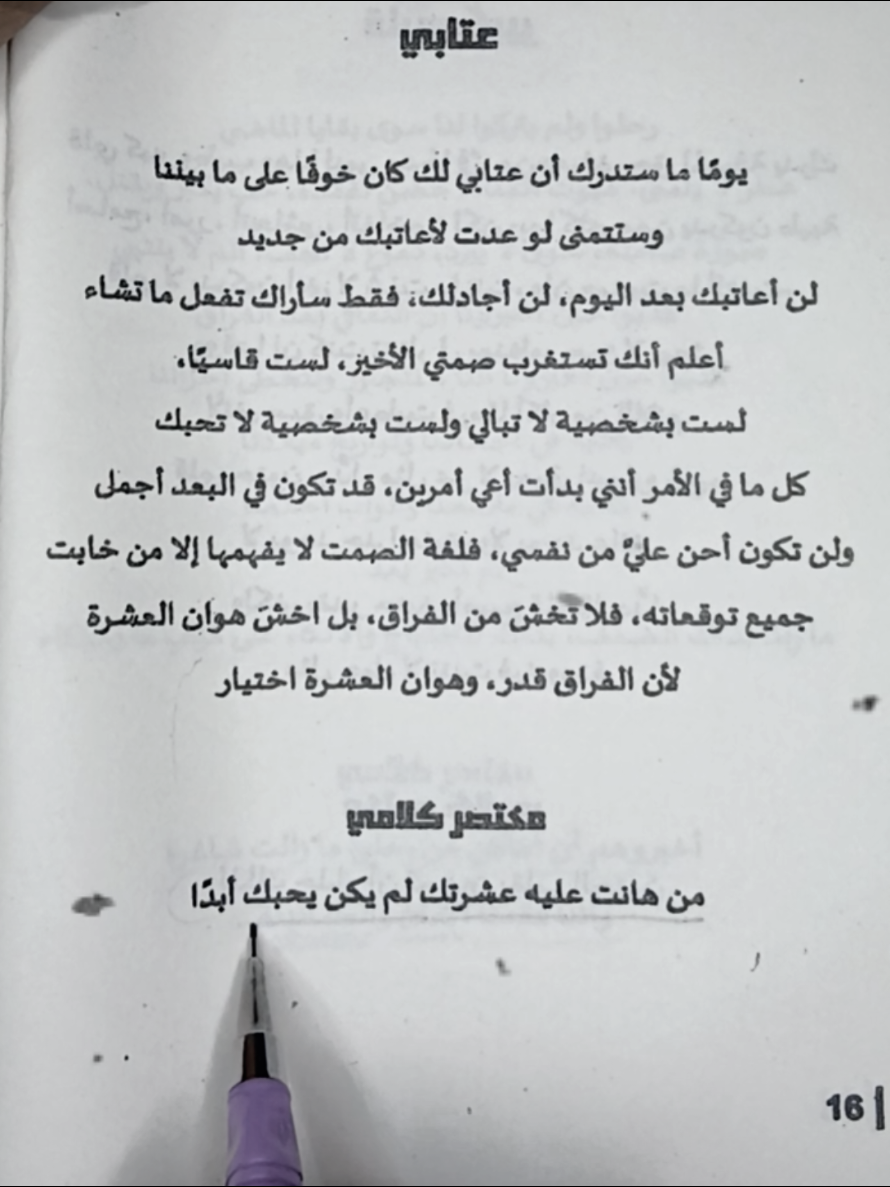 عتابي
يومًا ما ستدرك أن عتابي لك كان خوفًا على ما بيننا
وستتمنى لو عدت لأعاتبك من جديد
لن أعاتبك بعد اليوم، لن أجادلك، فقط سأراك تفعل ما تشاء
أعلم أنك تستغرب صمتي الأخير، لست قاسيًا،
لست بشخصية لا تبالي ولست بشخصية لا تحبك
كل ما في الأمر أنني بدأت أعي أمرين، قد تكون في البعد أجمل
ولن تكون أحن عليَّ من نفسي، فلغة الصمت لا يفهمها إلا من خابت
جميع توقعاته، فلا تخشَ من الفراق، بل اخشَ هوان العشرة
لأن الفراق قدر، وهوان العشرة اختيار
مختصر كلامي
من هانت عليه عشرتك لم يكن يحبك أبدًا
16